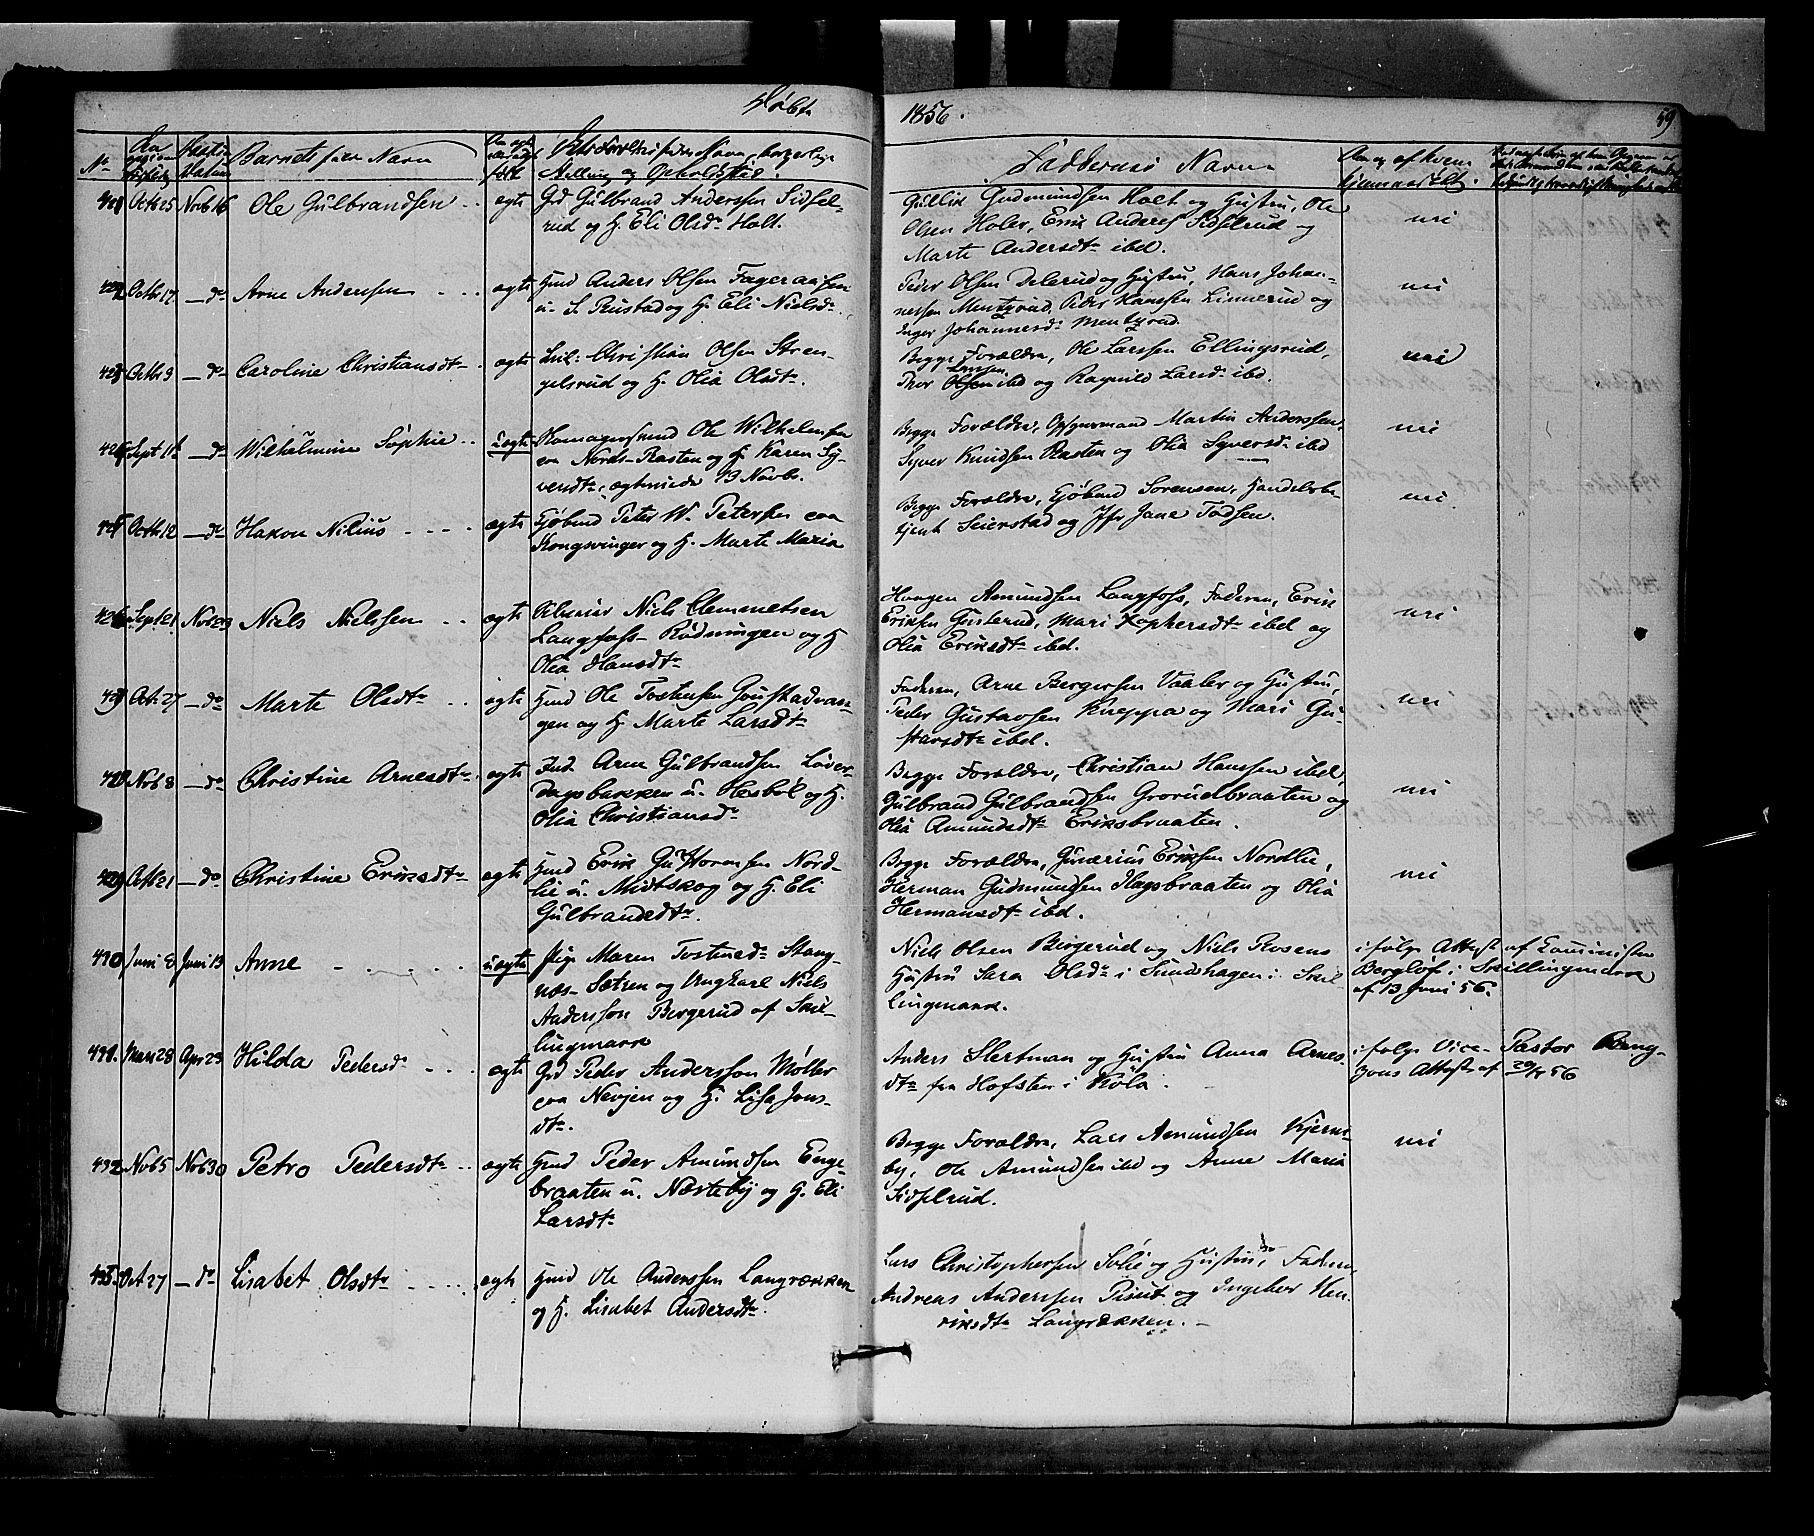 Døbte 1856. 59
No Barnets fulde Navn
Stilling og Opholdssted.
Faddernes Navne
Octbr 25 Novb 16 Ole Gulbrandsen ægte Gd Gulbrand Anderssen Sidsel-
rud og H. Eli Olsdtr Holt.
Gullik Gudmundsen Holt og Hustru, Ole
Olsen Holer, Erik Anders. Sidselrud og
Marte Andersdtr ibd.
nei
Octbr 17 — do Arne Anderssen ægte Hmd Anders Olsen Fageraasen
u. S. Rustad og H. Eli Nielsdtr.
Peder Olsen Delerud og Hustru, Hans Johan-
nessen Mentzrud, Peder Hanssen Linnerud og
Inger Johannesdr Mentzrud.
nei
Octbr 9 — do Caroline Christiansdtr ægte Inl: Christian Olsen Stren-
gelsrud og H. Olia Olsdtr.
Begge Forældre, Ole Larssen Ellingsrud,
Thor Larssen ibd og Ragnild Larsdr ibd.
nei
Sept 11 — do Wilhelmine Sophie uægte Ole Wilhelmsen
Nordr-Rasten og H. Karen Sy-
versdtr, ægteviede 19 Novbr.
Begge Forældre, Martin Anderssen,
Syver Knudsen Rasten og Olia Syversdtr ibd
nei
Octbr 12 — do Hakon Nilius ægte Kjøbmd Peter W. Petersen
Kongsvinger og H. Marte Maria
Begge Forældre, Kjøbmd Sørensen, Handelsbe-
tjent Seierstad og Jfr Jane Todsen.
nei
426 Sept 21 Nov 23 Niels Nielssen ægte Niels Clemmetsen
Langfoss-Rødningen og H.
Olia Hansdtr
Haagen Amundsen Langfoss, Faderen, Erik
Eriksen Gusterud, Mari Zophersdtr ibd og
Olia Eriksdtr ibd.
nei
Oct 27 — do Marte Olsdtr ægte Hmd Ole Tostensen Goustadvan-
gen og H. Marte Larsdtr
Faderen, Arne Bergersen Vaaler og Hustru,
Peder Gustavsen Kneppa og Mari Gu-
stavsdtr ibd.
nei
428 Novb 8 — do Christine Arnesdtr ægte Ind. Arne Gulbrandsen Løver-
dagsbakken u. Hesbøl og H.
Olia Christiansdr
Begge Forældre, Christian Hanssen ibd,
Gulbrand Gulbrandsen Grorudbraaten og
Olia Amundsdtr Eriksbraaten.
nei
429 Octbr 1 — do Christine Eriksdtr ægte Hmd Erik Nord-
lie u. Midtskog og H. Eli
Gulbrandsdtr.
Begge Forældre, Gunerius Eriksen Nordlie,
Herman Gudmundsen Hagsbraaten og Olia
Hermansdtr ibd.
nei
430 Juni 8 Juni 13 Anne uægte Pige Maren Tostensdr Stang-
næs-Sætren og Ungkarl Niels
Andersson Bergerud af Skil-
lingmark
Niels Olsen Bergerud og Niels Rosens
Hustru Sara Olsdr i Sundshagen i Skil-
lingmark.
ifølge Attest af Comminister
Berglöf i Skillingmark
af 13 Juni 56.
431. Mars 28 Apr 29 Hilda Pedersdr ægte Gd Peder Andersson Møller
paa Nevjen og H. Lisa Jons-
dtr.
Anders Hertman og Hustru Anna Arnes-
dtr fra Hofsten i Köla.
ifølge Vice-Pastor Beng-
zons Attest af 29/4 56
432 Novb 5 Novb 30 Petro Pedersdtr ægte Hmd Peder Amundsen Enge-
braaten u. Næsteby og H. Eli
Larsdtr
Begge Forældre, Lars Amundsen Kjerns-
by, Ole Amundsen ibd og Anne Maria
Sidselrud.
nei
433. Oct 27 — do Lisabet Olsdtr ægte Hmd Ole Anderssen Langrækken
og H. Lisabet Andersdtr.
Lars Christophersen Solie og Hustru, Faderen,
Andreas Anderssen Pisut og Ingebor Hen-
riksdtr Langrækken.